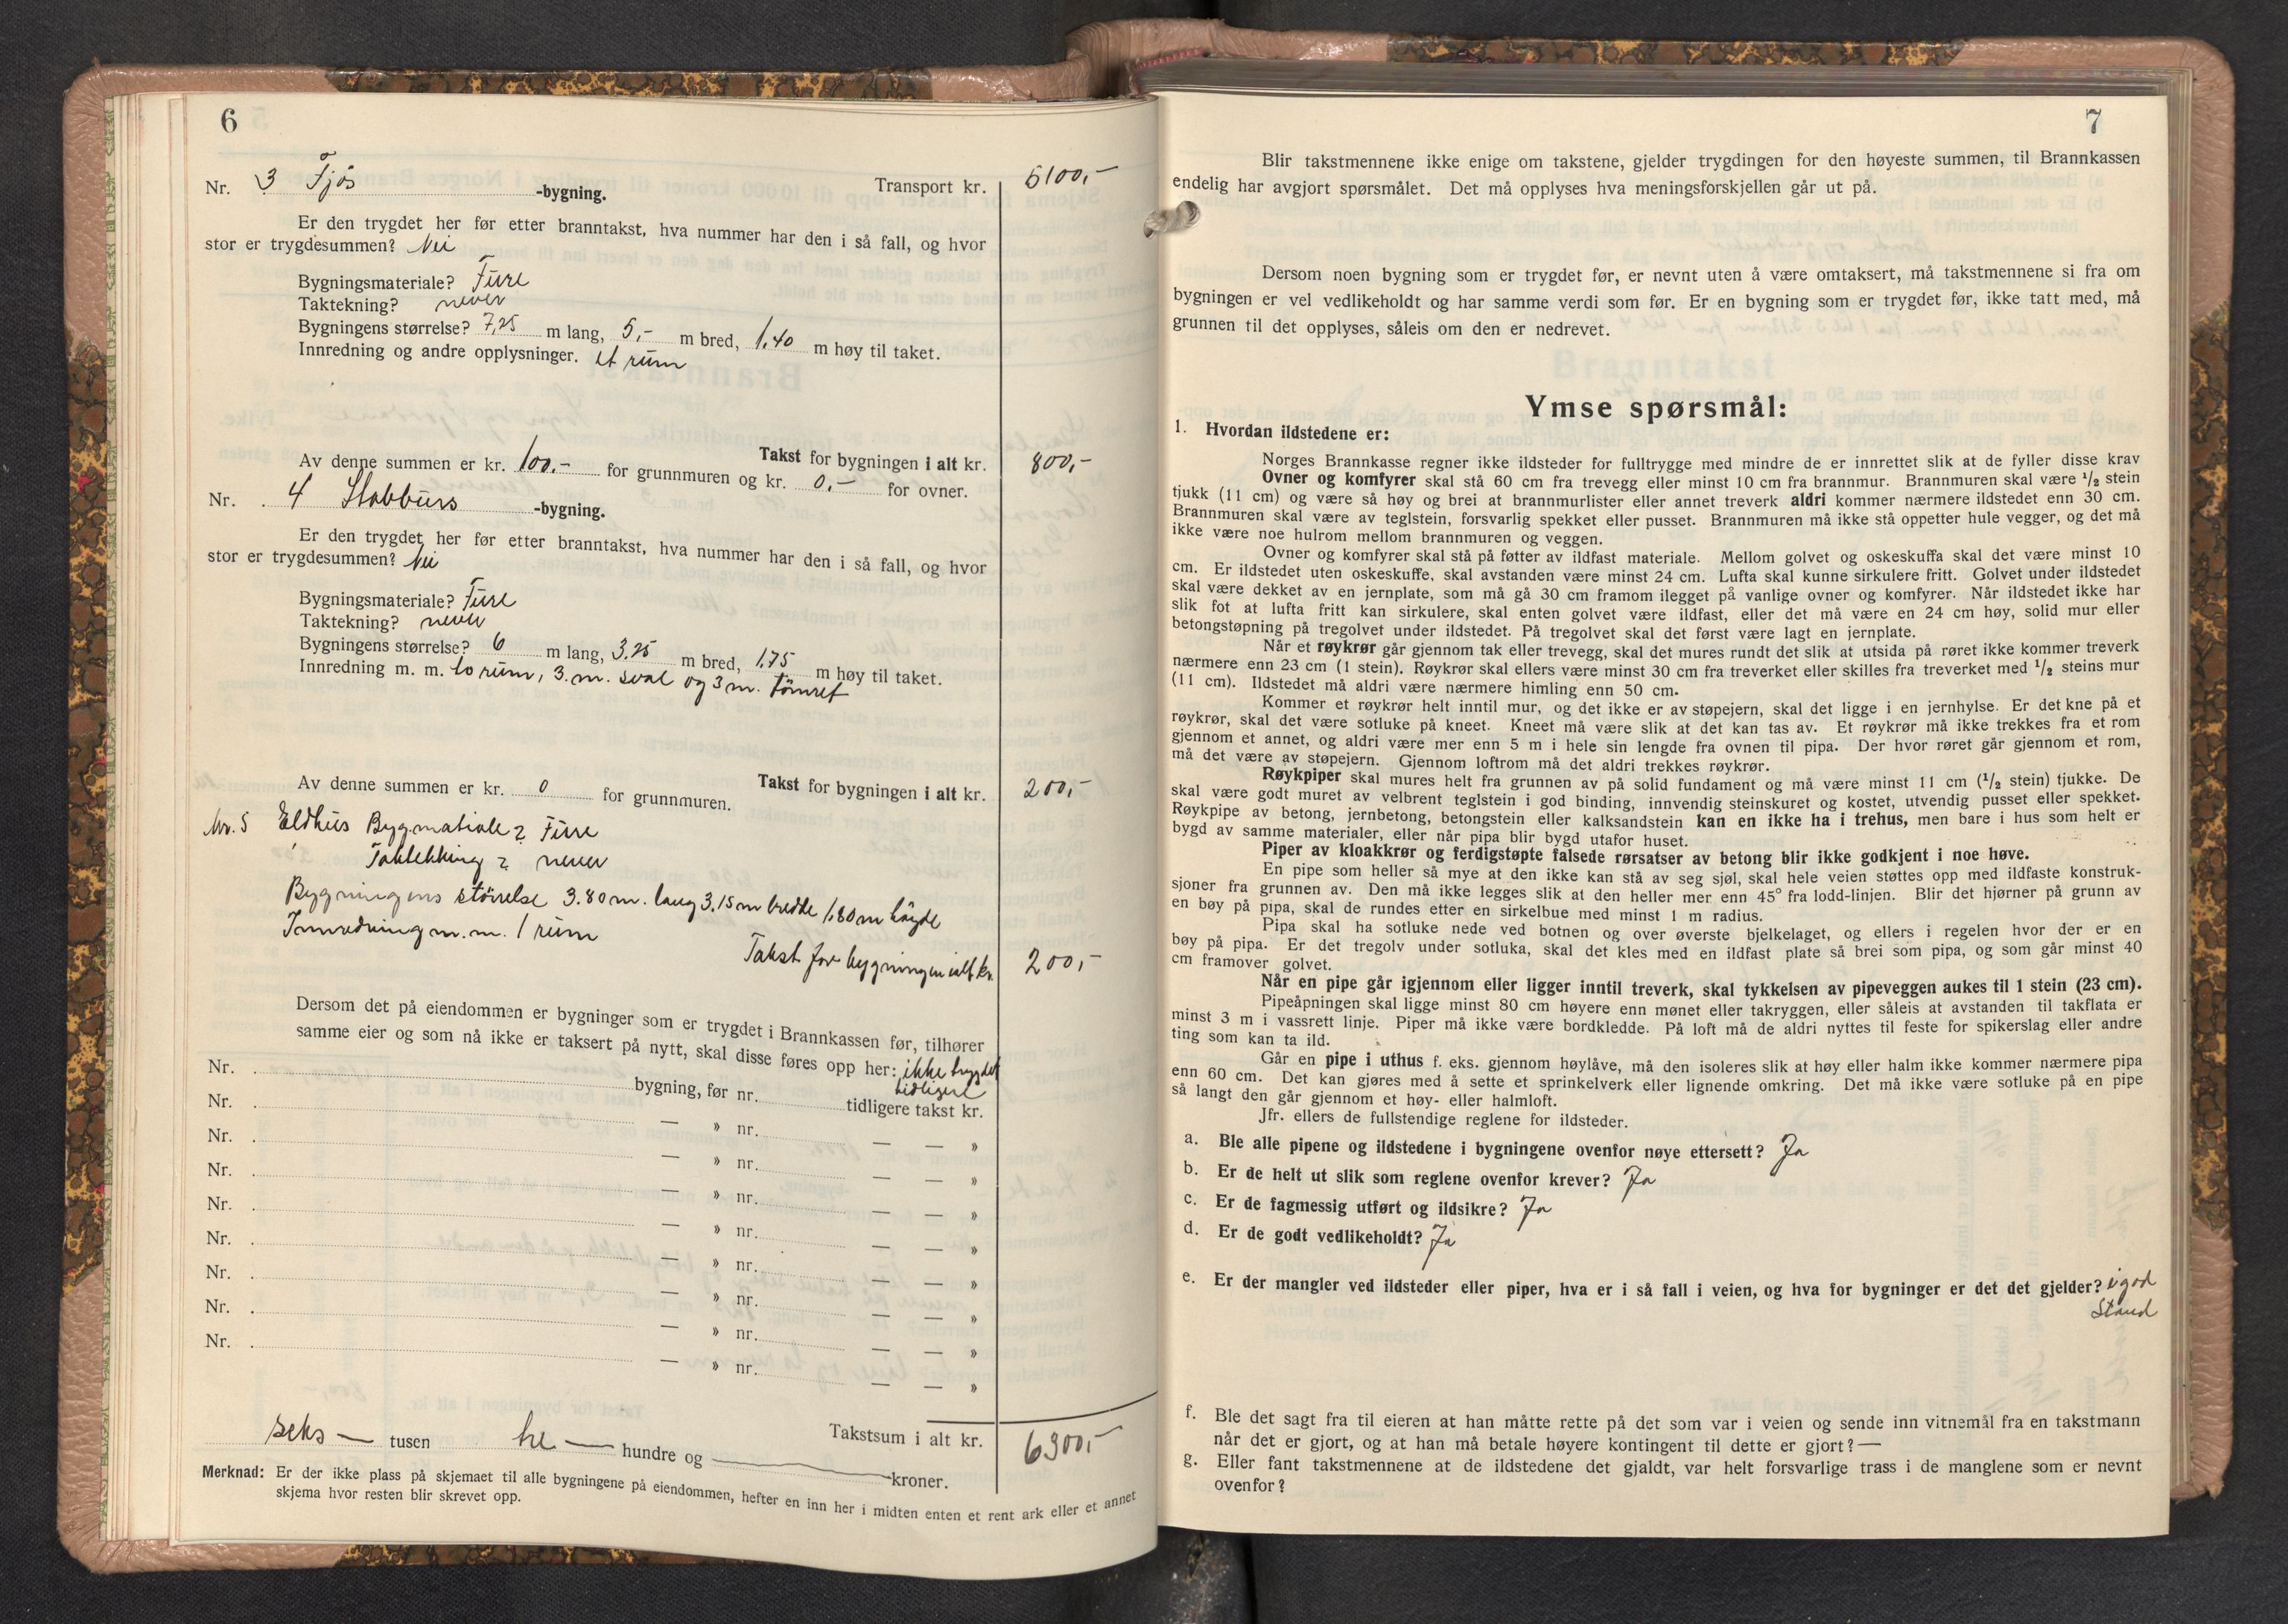 6
Nr. 3 Fjøs -bygning. Transport kr. 5100,-
Er den trygdet her før etter branntakst, hva nummer har den i så fall, og hvor
stor er trygdesummen? Nei
Bygningsmateriale? Fure
Taktekning? never
Bygningens størrelse? 7,25 m lang, 5,- m bred, 1,40 m høy til taket.
Innredning og andre opplysninger. et rum
Takst for bygningen i alt kr. 800,-
Av denne summen er kr. 100.- for grunnmuren og kr. 0,- for ovner.
Nr. 4 Stabburs -bygning.
Er den trygdet her før etter branntakst, hva nummer har den i så fall, og hvor
stor er trygdesummen? Nei
Bygningsmateriale? Fure
Taktekning? never
Bygningens størrelse? 6 m lang, 3,25 m bred, 1,75 m høy til taket.
Innredning m. m. to rum, 3.m. sval og 3 m. tömret
Takst for bygningen i alt kr. 200,-
Av denne summen er kr. 0 for grunnmuren.
Nr. 5 Eldhus Byg.matiale? Fure
Taktekking? never
Bygningens störrelse 3.80 m. lang 3,15 m bredde 1,80 m höyde
Innredning m.m. 1 rum
Takst for bygningen ialt kr. 200,-
Dersom det på eiendommen er bygninger som er trygdet i Brannkassen før, tilhører
samme eier og som nå ikke er taksert på nytt, skal disse føres opp her: ikke trygdet
tidligere
Nr. bygning, før nr. tidligere takst kr.
Nr. — » nr. — — »
Nr. — » nr. — — »
Nr. — » nr. — — »
Nr. — » nr. — — »
Nr. — » nr. — — »
Nr. — » nr. — — »
Nr. — » nr. — — »
Nr. — » nr. — — »
Takstsum i alt kr. 6300,-
seks — tusen tre — hundre og — kroner.
Merknad: Er der ikke plass på skjemaet til alle bygningene på eiendommen, hefter en inn her i midten enten et rent ark eller et annet
skjema hvor resten blir skrevet opp.
7
Blir takstmennene ikke enige om takstene, gjelder trygdingen for den høyeste summen, til Brannkassen
endelig har avgjort spørsmålet. Det må opplyses hva meningsforskjellen går ut på.
Dersom noen bygning som er trygdet før, er nevnt uten å være omtaksert, må takstmennene si fra om
bygningen er vel vedlikeholdt og har samme verdi som før. Er en bygning som er trygdet før, ikke tatt med, må
grunnen til det opplyses, såleis om den er nedrevet.
Ymse spørsmål:
1. Hvordan ildstedene er:
Norges Brannkasse regner ikke ildsteder for fulltrygge med mindre de er innrettet slik at de fyller disse krav
Ovner og komfyrer skal stå 60 cm fra trevegg eller minst 10 cm fra brannmur. Brannmuren skal være 1/2 stein
tjukk (11 cm) og være så høy og brei at brannmurlister eller annet treverk aldri kommer nærmere ildstedet enn 30 cm.
Brannmuren skal være av teglstein, forsvarlig spekket eller pusset. Brannmuren må ikke stå oppetter hule vegger, og det må
ikke være noe hulrom mellom brannmuren og veggen.
Ovner og komfyrer skal stå på føtter av ildfast materiale. Mellom golvet og oskeskuffa skal det være minst 10
cm. Er ildstedet uten oskeskuffe, skal avstanden være minst 24 cm. Lufta skal kunne sirkulere fritt. Golvet under ildstedet
skal være dekket av en jernplate, som må gå 30 cm framom ilegget på vanlige ovner og komfyrer. Når ildstedet ikke har
slik fot at lufta fritt kan sirkulere, skal enten golvet være ildfast, eller det må være en 24 cm høy, solid mur eller
betongstøpning på tregolvet under ildstedet. På tregolvet skal det først være lagt en jernplate.
Når et røykrør går gjennom tak eller trevegg, skal det mures rundt det slik at utsida på røret ikke kommer treverk
nærmere enn 23 cm (1 stein). Røykrør skal ellers være minst 30 cm fra treverket eller skilles fra treverket med 1/2 steins mur
(11 cm). Ildstedet må aldri være nærmere himling enn 50 cm.
Kommer et røykrør helt inntil mur, og det ikke er av støpejern, skal det ligge i en jernhylse. Er det kne på et
røykrør, skal det være sotluke på kneet. Kneet må være slik at det kan tas av. Et røykrør må ikke trekkes fra et rom
gjennom et annet, og aldri være mer enn 5 m i hele sin lengde fra ovnen til pipa. Der hvor røret går gjennom et rom,
må det være av støpejern. Gjennom loftrom må det aldri trekkes røykrør.
Røykpiper skal mures helt fra grunnen av på solid fundament og må være minst 11 cm (1/2 stein) tjukke. De
skal være godt muret av velbrent teglstein i god binding, innvendig steinskuret og kostet, utvendig pusset eller spekket.
Røykpipe av betong, jernbetong, betongstein eller kalksandstein kan en ikke ha i trehus, men bare i hus som helt er
bygd av samme materialer, eller når pipa blir bygd utafor huset.
Piper av kloakkrør og ferdigstøpte falsede rørsatser av betong blir ikke godkjent i noe høve.
En pipe som heller så mye at den ikke kan stå av seg sjøl, skal hele veien støttes opp med ildfaste konstruk-
sjoner fra grunnen av. Den må ikke legges slik at den heller mer enn 45° fra lodd-linjen. Blir det hjørner på grunn av
en bøy på pipa, skal de rundes etter en sirkelbue med minst 1 m radius.
Pipa skal ha sotluke nede ved botnen og over øverste bjelkelaget, og ellers i regelen hvor der er en
bøy på pipa. Er det tregolv under sotluka, skal det kles med en ildfast plate så brei som pipa, og som går minst 40
cm framover golvet.
Når en pipe går igjennom eller ligger inntil treverk, skal tykkelsen av pipeveggen aukes til 1 stein (23 cm).
Pipeåpningen skal ligge minst 80 cm høyere enn mønet eller takryggen, eller såleis at avstanden til takflata er
minst 3 m i vassrett linje. Piper må ikke være bordkledde. På loft må de aldri nyttes til feste for spikerslag eller andre
ting som kan ta ild.
Går en pipe i uthus f. eks. gjennom høylåve, må den isoleres slik at høy eller halm ikke kommer nærmere pipa
enn 60 cm. Det kan gjøres med å sette et sprinkelverk eller lignende omkring. Det må ikke være sotluke på en pipe
så langt den går gjennom et høy- eller halmloft.
Jfr. ellers de fullstendige reglene for ildsteder.
a. Ble alle pipene og ildstedene i bygningene ovenfor nøye ettersett? Ja
b. Er de helt ut slik som reglene ovenfor krever? Ja
c. Er de fagmessig utført og ildsikre? Ja
d. Er de godt vedlikeholdt? Ja
e. Er der mangler ved ildsteder eller piper, hva er i så fall i veien, og hva for bygninger er det det gjelder? i god
Stand
f. Ble det sagt fra til eieren at han måtte rette på det som var i veien og sende inn vitnemål fra en takstmann
når det er gjort, og at han må betale høyere kontingent til dette er gjort? —
g. Eller fant takstmennene at de ildstedene det gjaldt, var helt forsvarlige trass i de manglene som er nevnt
ovenfor?